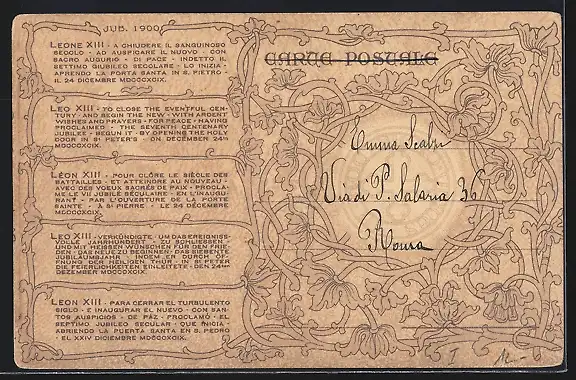 JUB. 1900
LEONE XIII - A CHIUDERE IL SANGUINOSO
SECOLO - AD AUSPICARE IL NUOVO - CON
SACRO AUGURIO - DI PACE - INDETTO IL
SETTIMO GIUBILEO SECOLARE - LO INIZIA -
APRENDO LA PORTA SANTA IN S. PIETRO -
IL 24 DICEMBRE MDCCCXCIX.
LEO XIII - TO CLOSE THE EVENTFUL CEN-
TURY - AND BEGIN THE NEW - WITH ARDENT
WISHES AND PRAYERS - FOR PEACE - HAVING
PROCLAIMED - THE SEVENTH CENTENARY
JUBILEE - BEGUN IT - BY OPENING THE HOLY
DOOR IN ST PETER'S - ON DECEMBER 24th
MDCCCXCIX.
LÉON XIII - POUR CLÔRE LE SIÈCLE DES
BATTAILLES - ET ATTEINDRE AU NOUVEAU -
AVEC DES VOEUX SACRÉS DE PAIX - PROCLA-
ME LE VII JUBILÉ SÉCULAIRE - EN L'INAUGU-
RANT - PAR L'OUVERTURE DE LA PORTE
SAINTE - À ST PIERRE - LE 24 DÉCEMBRE
MDCCCXCIX.
LEO XIII - VERKÜNDIGTE - UM DAS EREIGNISS-
VOLLE JAHRHUNDERT - ZU SCHLIESSEN -
UND MIT HEISSEN WÜNSCHEN FÜR DEN FRIE-
DEN DAS NEUE ZU BEGINNEN - DAS SIEBEN
JUBILÄUMSJAHR - INDEM ER DURCH ÖF-
FNUNG DER HEILIGEN THÜR - IN ST PETER
DIE FEIERLICHKEITEN EINLEITETE - DEN 24ten
DEZEMBER MDCCCXCIX.
LEON XIII - PARA CERRAR EL TURBULENTO
SIGLO - E INAUGURAR EL NUEVO - CON SAN-
TOS AUSPICIOS - DE PAZ - PROCLAMÓ - EL
SEPTIMO JUBILEO SECULAR - QUE INICIA -
ABRIENDO LA PUERTA SANTA EN S. PEDRO
- EL XXIV DICIEMBRE MDCCCXCIX.
CARTE POSTALE
Emma Scalzi
Via di P. Salaria 36
Roma